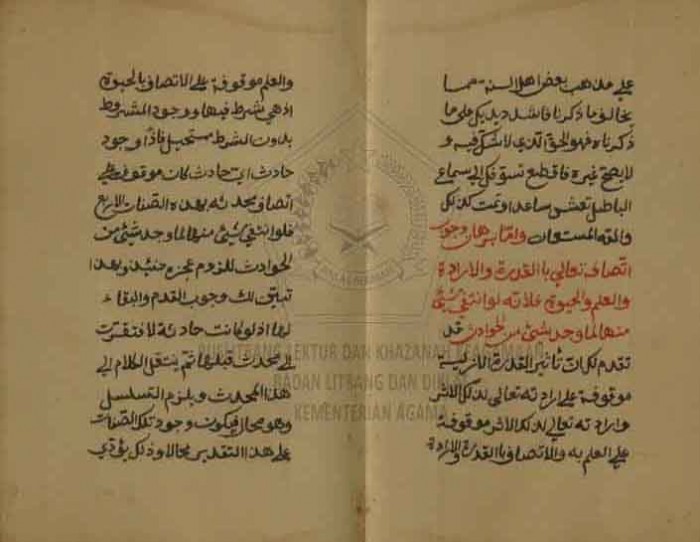 على مذهب بعض اهل السنة مما
يخالف ما ذكرناه فاشدد يديك على ما
ذكرناه فهو الحق الذي لا شك فيه و
لا يصح غيره فاقطع تشوفك الى سماع
الباطل تعش سعيدا وتمت كذلك
والله المستعان واما برهان وجوب
اتصافه تعالى باالقدرة والارادة
والعلم والحيوة فلانه لو انتفى شيئ
منها لما وجد شيئ من الحوادث قد
تقدم لك ان تأثير القدرة الازلية
موقوف على ارادته تعالى لذلك الاثر
وارادته تعالى لذلك الاثر موقوفة
على العلم به والاتصاف باالقدرة والارادة
والعلم موقوفة على الاتصاف بالحيوة
اذ هي شرط فيها ووجود المشروط
بدون الشرط مستحيل فاذا وجود
حادث اي حادث كان موقوف على
اتصاف محدثه بهذه الصفات الاربع
فلو انتفى شيئ منها لما وجد شيئ من
الحوادث للزوم عجزه حينئذ وبهذا
تبين لك وجوب القدم والبقاء
لها اذ لو كانت حادثة لافتقرت
الى محدث قبلها ثم ينتقل الكلام الى
هذا المحدث ويلزم التسلسل
وهو محال فيكون وجود تلك الصفات
على هذا التقدير محالا وذلك يؤدي
PUSLITBANG LEKTUR DAN KHAZANAH KEAGAMAAN
BADAN LITBANG DAN DIKLAT
KEMENTERIAN AGAMA